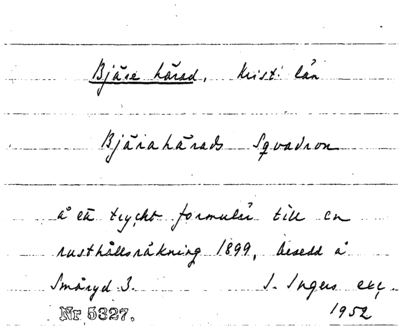 Bjäre härad, Krist. län
Bjäriahärads Sqvadron
å ett tryckt formulär till en
rusthållsräkning 1899, besedd å
Småryd 3. I. Ingers exc.
Nr 5327. 1952